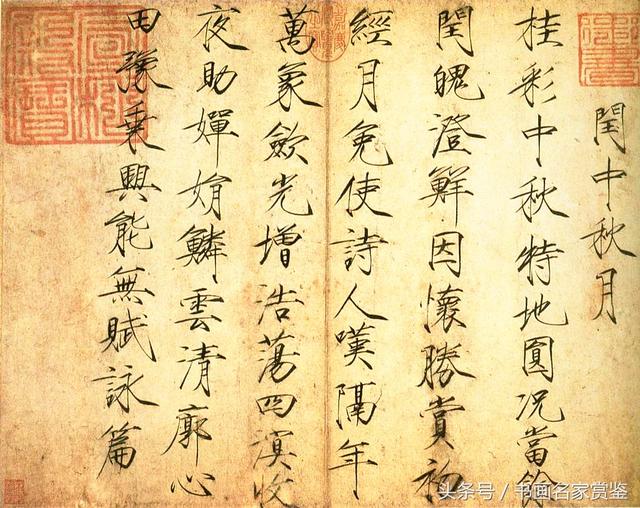 閏中秋月
桂彩中秋特地圓况當餘
閏魄澄鮮因懷勝賞初
經月免使詩人嘆隔年
萬象斂光增浩蕩四溟收
夜助嬋娟鱗雲清廓心
田豫乘興能無賦詠篇
头条号 / 书画名家赏鉴